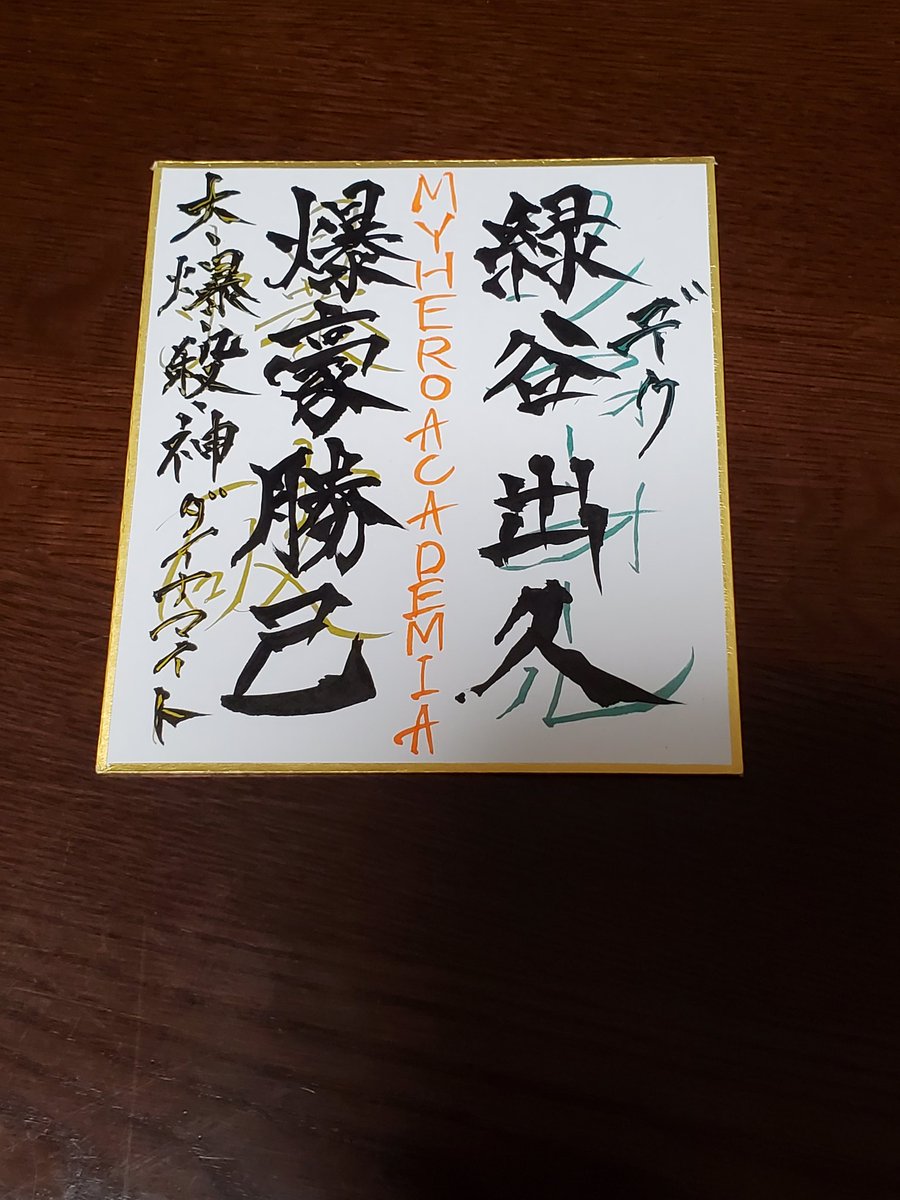 デク
緑谷出久
MY HERO ACADEMIA
爆豪勝己
大・爆・殺・神ダイナマイト